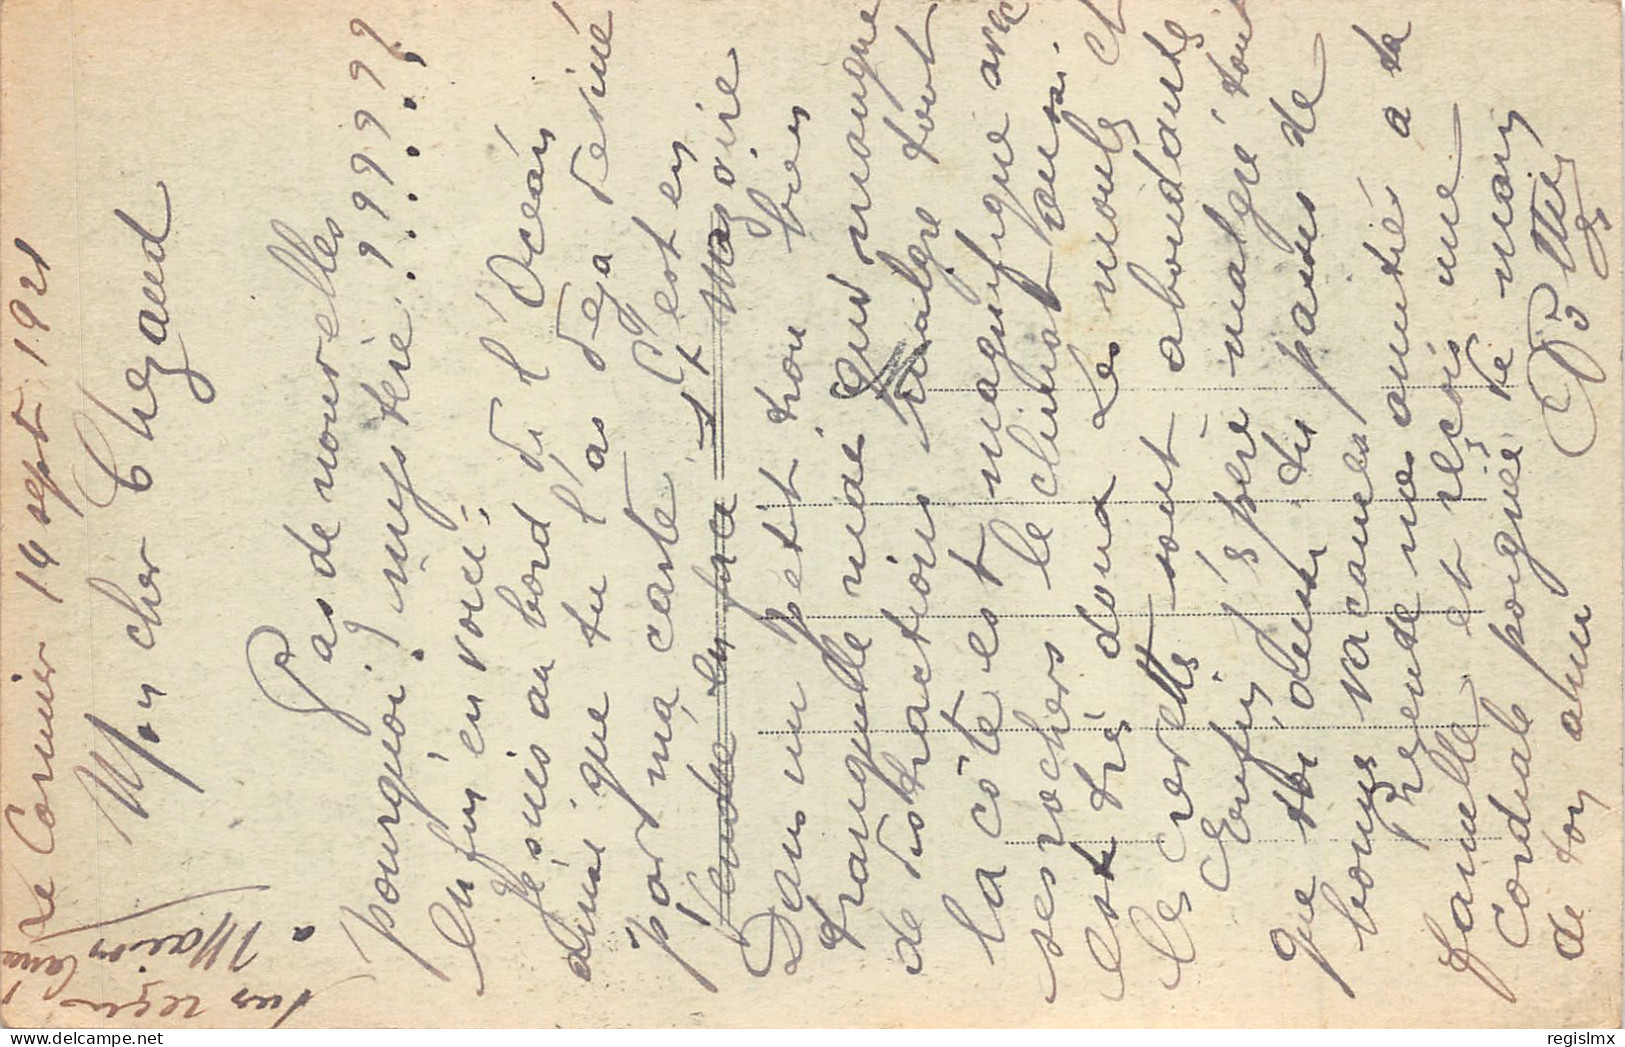 Le Cormier 14 sept 1921
Mon cher Chezaud
Pas de nouvelles
pourquoi? mystère ?????????
Enfin en voici:
Je suis au bord de l'Océan
ainsi que tu l'as deja deviné
par ma carte C'est en
Vendée en face
Dans un petit trou bien
tranquille mais qui manque
de distractions malgre tout
la côte est magnifique avec
ses rochers le climat aussi.
est très doux Les moules et
les crevettes sont abondantes
Enfin j'espère malgré tout
que toi aussi tu passes de
bonnes vacances
Presente mes amitiés a ta
famille et reçois une
Cordiale poignée de main
de ton ami
regislmx